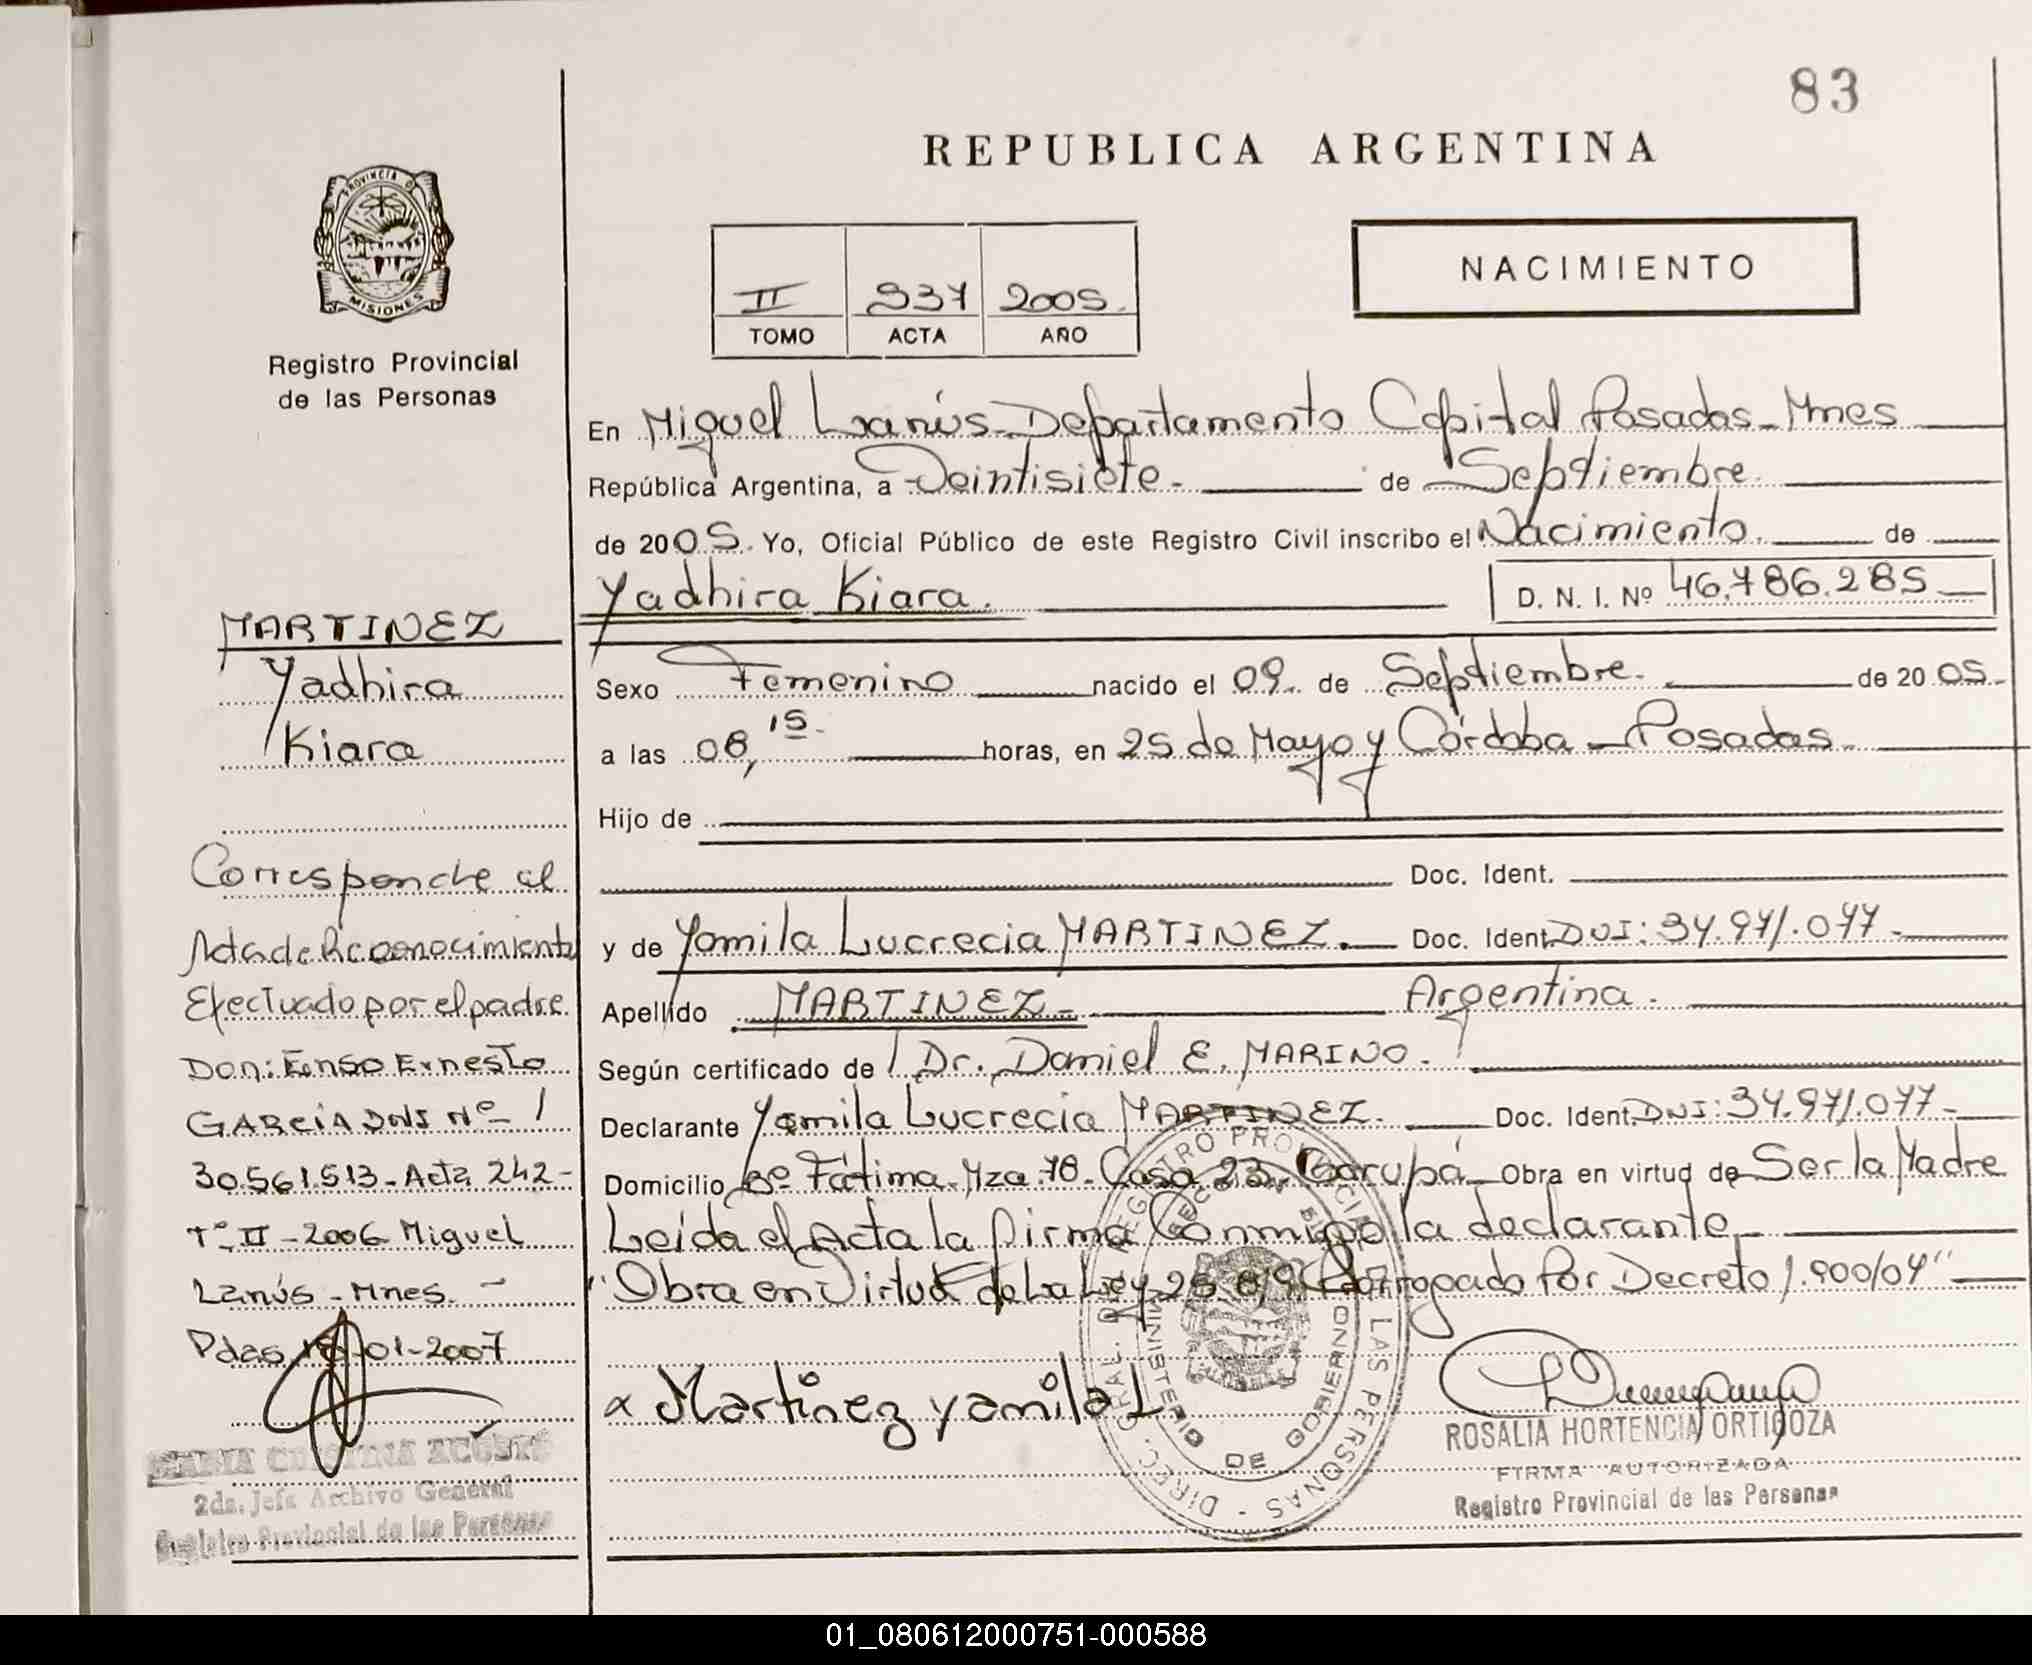 83
REPUBLICA ARGENTINA
PROVINCIA DE
MISIONES
Registro Provincial
de las Personas
II 937 2005.
TOMO ACTA AÑO
NACIMIENTO
En Miguel Lanús - Departamento Capital Posadas - Mnes
República Argentina, a Veintisiete - de Septiembre.
de 2005. Yo, Oficial Público de este Registro Civil inscribo el Nacimiento. de
Yadhira Kiara. D. N. I. Nº 46.786.285
Sexo Femenino nacido el 09. de Septiembre. de 2005.
a las 08,15. horas, en 25 de Mayo y Córdoba - Posadas.
Hijo de
Doc. Ident.
y de Yamila Lucrecia MARTINEZ. Doc. Ident. DNI: 34.971.077-
Apellido MARTINEZ - Argentina.
Según certificado de Dr. Daniel E. MARINO.
Declarante Yamila Lucrecia MARTINEZ. Doc. Ident. DNI: 34.971.077-
Domicilio Bº Fátima. Mza. 78. Casa 23. Garupá. Obra en virtud de Ser la Madre
Leída el Acta la firma Conmigo la declarante
"Obra en Virtud de La Ley 25.819 Prorrogado Por Decreto 1.900/04"
x Martinez yamila L
ROSALIA HORTENCIA ORTIGOZA
FIRMA AUTORIZADA
Registro Provincial de las Personas
DIREC. GRAL. REGISTRO PROVINCIAL DE LAS PERSONAS
MINISTERIO DE GOBIERNO
MARTINEZ
Yadhira
Kiara
Corresponde al
Acta de Reconocimiento
Efectuado por el padre
Don: Enso Ernesto
GARCIA DNI Nº
30.561.513 - Acta 242 -
Tº II - 2006 Miguel
Lanús - Mnes. -
Pdas 01-2007
MARIA CRISTINA
2da. Jefa Archivo General
Registro Provincial de las Personas
01_080612000751-000588